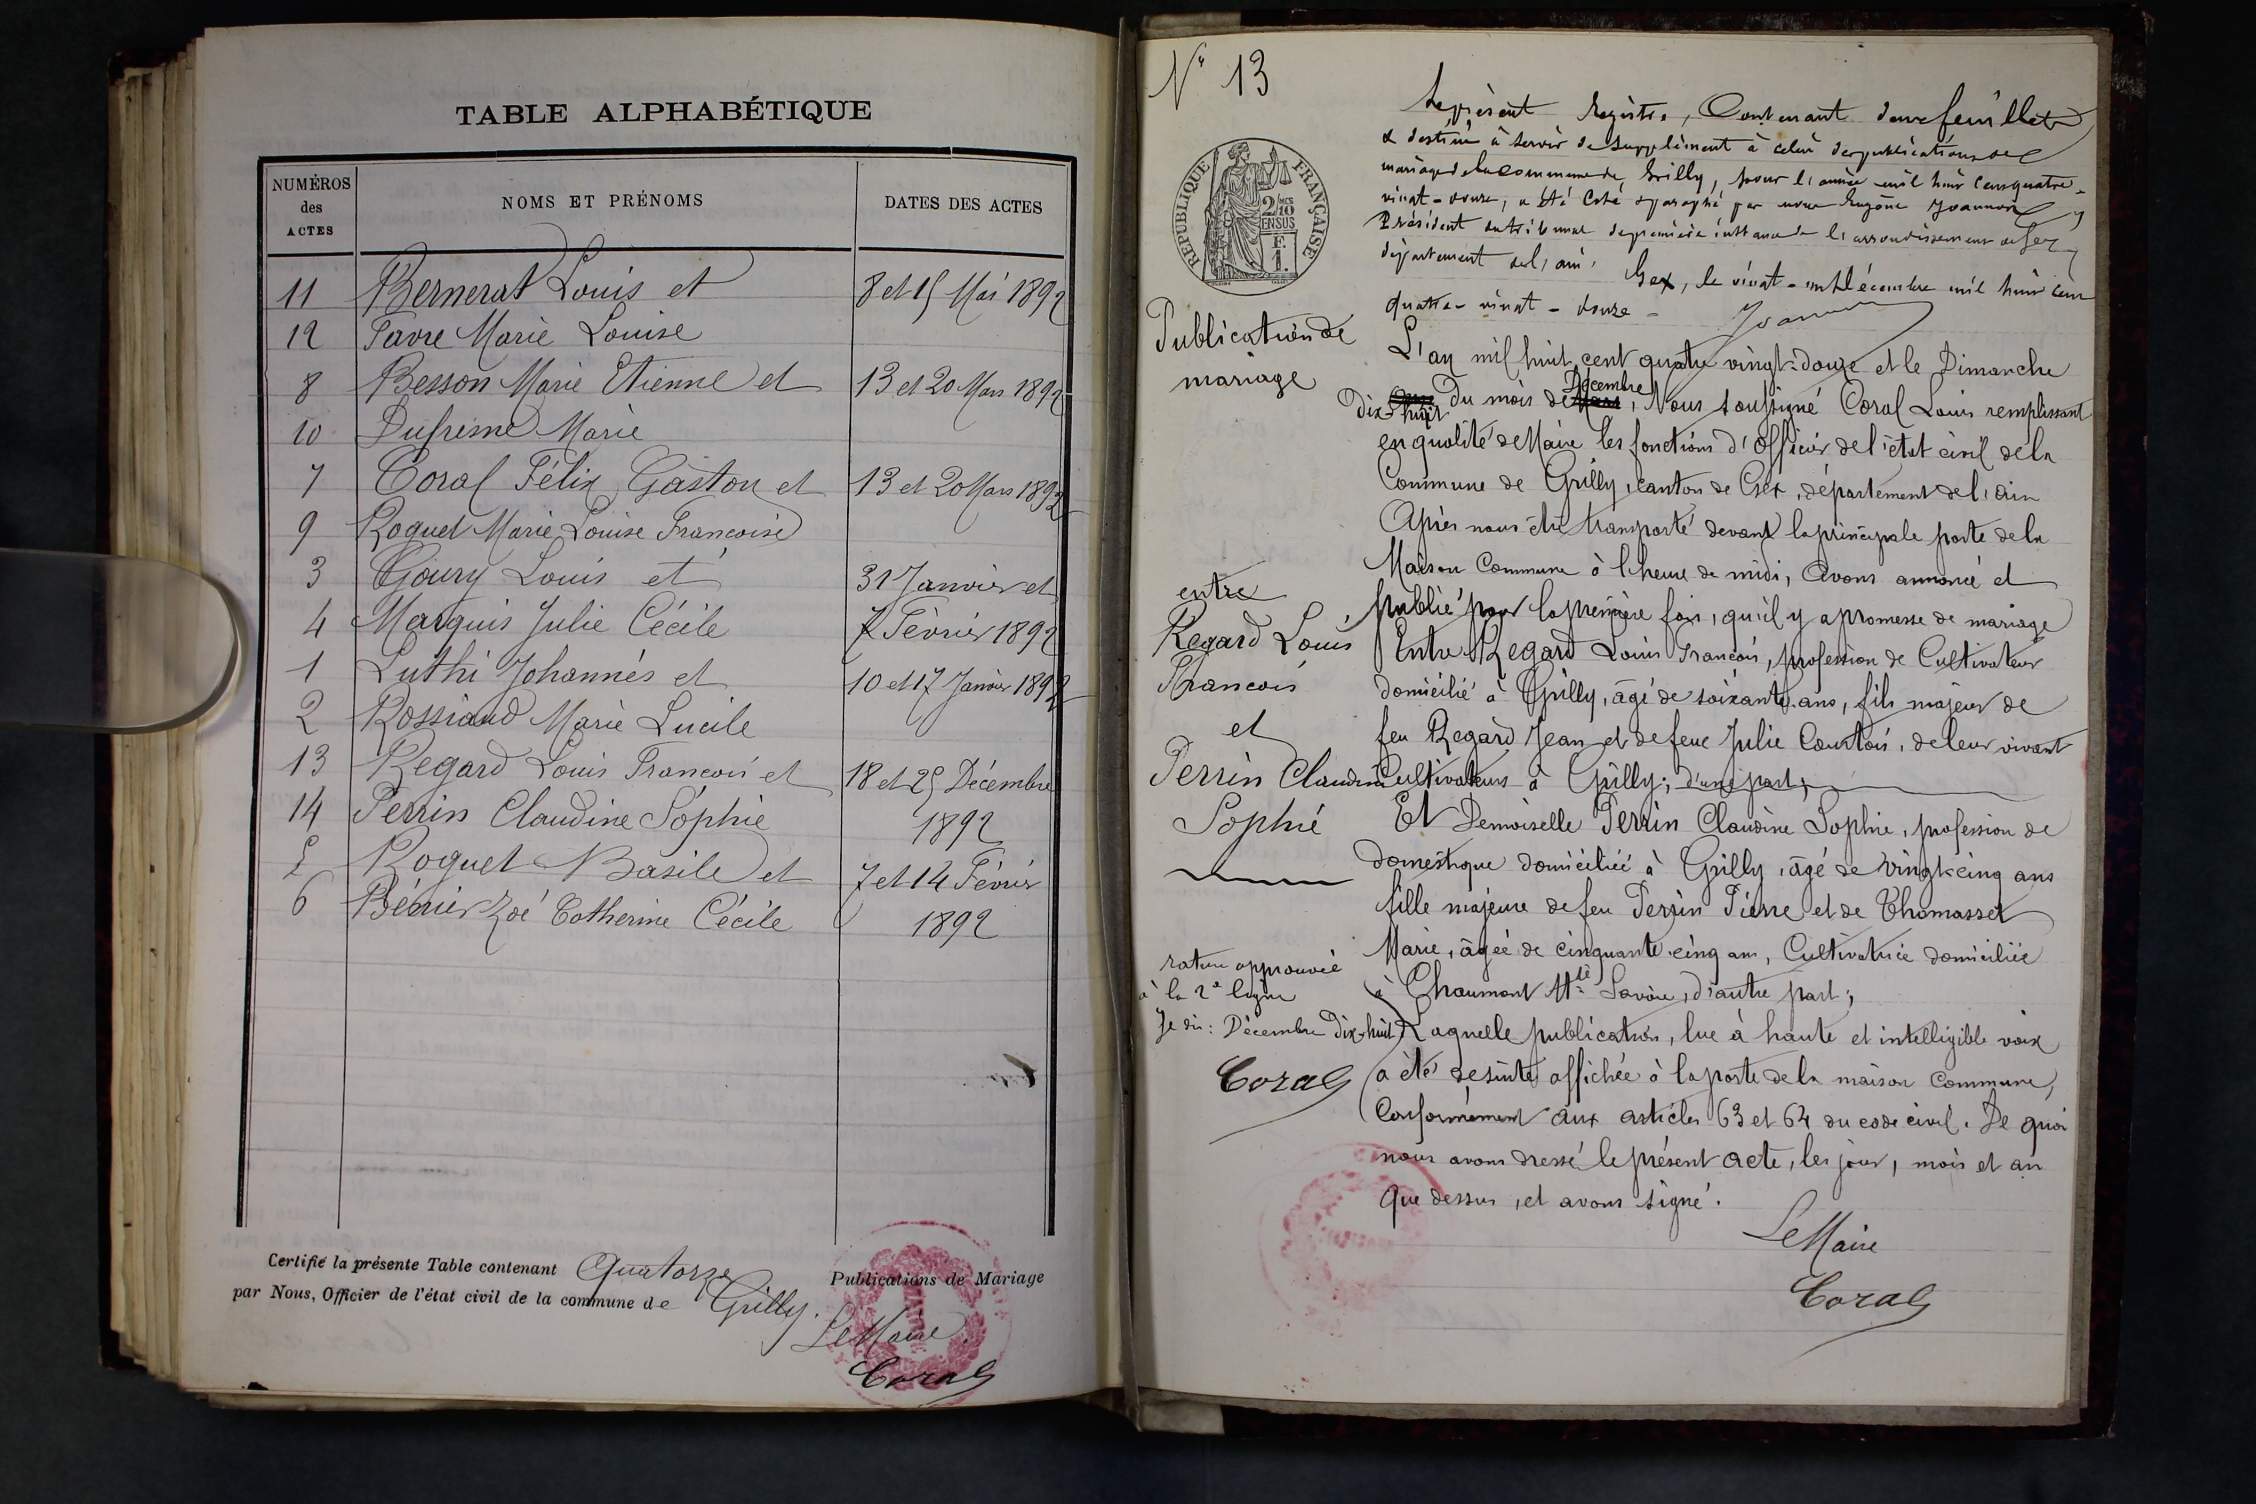 TABLE ALPHABÉTIQUE
NUMÉROS des ACTES
NOMS ET PRÉNOMS
DATES DES ACTES
11 Bernerat Louis et 8 et 15 Mai 1892
12 Favre Marie Louise
8 Besson Marie Etienne et 13 et 20 Mars 1892
10 Dufresne Marie
7 Coral Félix Gaston et 13 et 20 Mars 1892
9 Roquet Marie Louise Francoise
3 Goury Louis et 31 Janvier et
4 Marquis Julie Cécile 7 Février 1892
1 Luthi Johannés et 10 et 17 Janvier 1892
2 Rossiaud Marie Lucile
13 Regard Louis Francois et 18 et 25 Décembre
14 Perrin Claudine Sophie 1892
5 Roquet Basile et 7 et 14 Février
6 Zoé Catherine Cécile 1892
Certifié la présente Table contenant Quatorze Publications de Mariage
par Nous, Officier de l'état civil de la commune de Grilly.
Le Maire.
Coral
N° 13
RÉPUBLIQUE FRANÇAISE
2/10 EN SUS
F.
1.
Le présent Registre, Contenant deux feuillets
& destiné à servir de supplément à celui des publications de
mariage de la commune de Grilly, pour l'année mil huit cent quatre-
vingt-douze, a été coté & paraphé par nous Eugène
Président du tribunal de première instance de l'arrondissement de Gex
département de l'ain. Gex, le vingt-un Décembre mil huit cent
quatre-vingt-douze-
Publication de
mariage
L'an mil huit cent quatre vingt-douze et le Dimanche
Dix-huit Du mois de Décembre, Nous soussigné Coral Louis remplissant
en qualité de Maire les fonctions d'Officier de l'état civil de la
Commune de Grilly, canton de Gex, département de l'ain
Après nous être transporté devant la principale porte de la
Maison Commune à l'heure de midi, Avons annoncé et
publié pour la première fois, qu'il y a promesse de mariage
entre
Regard Louis
Francois
et
Perrin Claudine
Sophie
Entre Regard Louis Francois, profession de Cultivateur
domicilié à Grilly, âgé de soixante ans, fils majeur de
feu Regard Jean et de feue Julie Courtois, de leur vivant
Cultivateurs à Grilly; d'une part;
Et Demoiselle Perrin Claudine Sophie, profession de
domestique domiciliée à Grilly, âgé de vingt-cinq ans
fille majeure de feu Perrin Pierre et de Thomasset
Marie, âgée de cinquante-cinq ans, Cultivatrice domiciliée
à Chaumont Hte Savoie, d'autre part;
rature approuvée
à la 2e ligne
Je dis: Décembre Dix-huit
Coral
Laquelle publication, lue à haute et intelligible voix
a été de suite affichée à la porte de la maison Commune,
Conformément aux articles 63 et 64 du code civil. De quoi
nous avons dressé le présent acte, les jour, mois et an
que dessus, et avons signé.
Le Maire
Coral